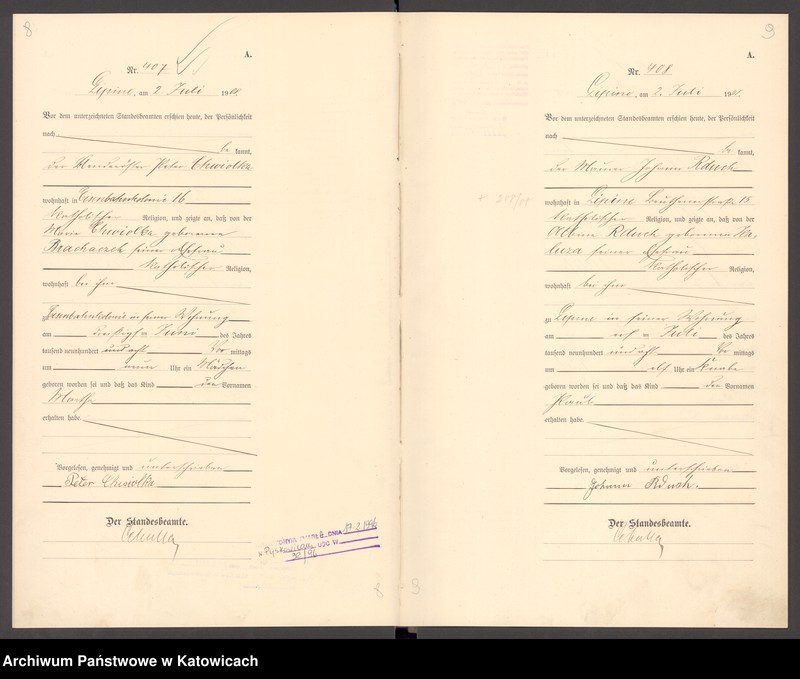 8
A.
Nr. 407
Lipine, am 2 Juli 1908.
Vor dem unterzeichneten Standesbeamten erschien heute, der Persönlichkeit
nach
be kannt,
der Peter Chwiolka
wohnhaft in 16
katholischer Religion, und zeigte an, daß von der
Marie Chwiolka geborenen
Brachaczek seiner Ehefrau
katholischer Religion,
wohnhaft bei ihm
zu in seiner Wohnung
am dreißigsten Juni des Jahres
tausend neunhundert und acht Vor mittags
um neun Uhr ein Mädchen
geboren worden sei und daß das Kind den Vornamen
Martha
erhalten habe.
Vorgelesen, genehmigt und unterschrieben
Peter Chwiolka
Der Standesbeamte.
DNIA 17.2.1996
USC W
32/96
8
9
A.
Nr. 408
Lipine, am 2. Juli 1908.
Vor dem unterzeichneten Standesbeamten erschien heute, der Persönlichkeit
nach
be kannt,
der Maurer Johann Rduch
wohnhaft in Lipine Beuthenerstraße 15
katholischer Religion, und zeigte an, daß von der
Rduch geborenen Ka-
luza seiner Ehefrau
katholischer Religion,
wohnhaft bei ihm
zu Lipine in seiner Wohnung
am Juli des Jahres
tausend neunhundert und acht Vor mittags
um elf Uhr ein Knabe
geboren worden sei und daß das Kind den Vornamen
Paul
erhalten habe.
Vorgelesen, genehmigt und unterschrieben
Johann Rduch.
Der Standesbeamte.
9
Archiwum Państwowe w Katowicach